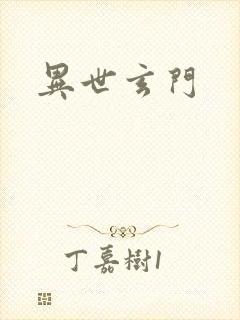 異世玄門
丁嘉樹1